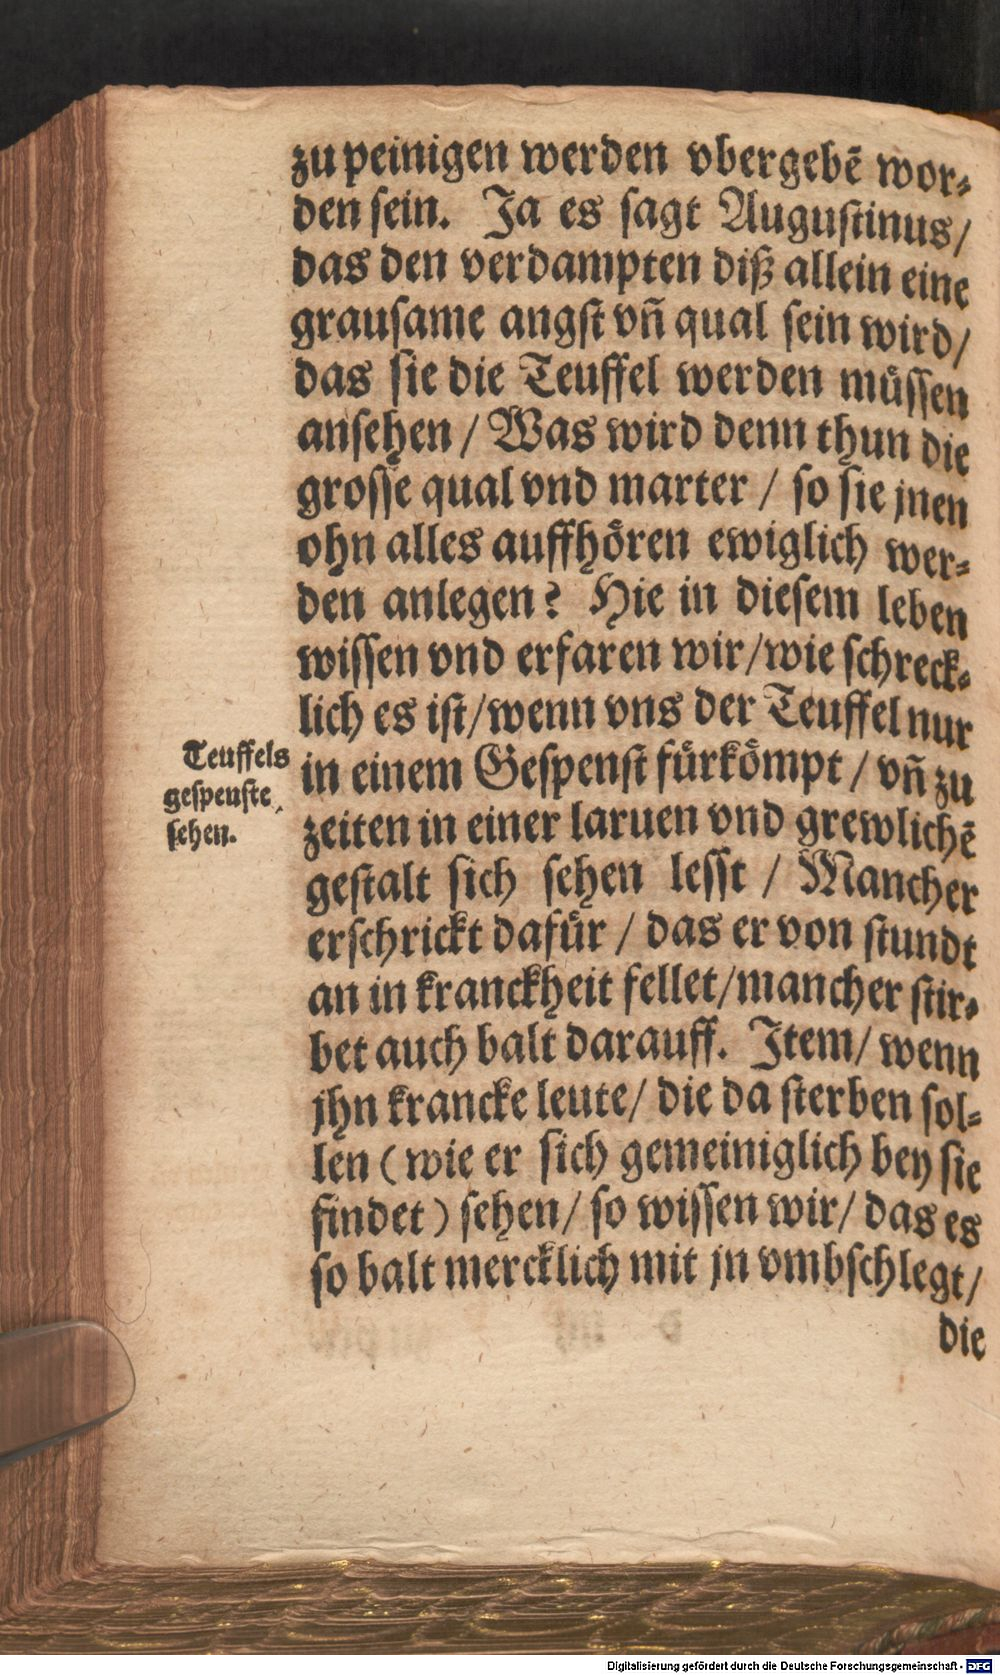 zu peinigen werden vbergebẽ wor⸗
den sein. Ja es sagt Augustinus/
das den verdampten diß allein eine
grausame angst vñ qual sein wird/
das sie die Teuffel werden muͤssen
ansehen / Was wird denn thun die
grosse qual vnd marter / so sie jnen
ohn alles auffhoͤren ewiglich wer⸗
den anlegen? Hie in diesem leben
wissen vnd erfaren wir/wie schreck⸗
lich es ist/wenn vns der Teuffel nur
in einem Gespenst fuͤrkoͤmpt / vñ zu
zeiten in einer laruen vnd grewlichẽ
gestalt sich sehen lesst / Mancher
erschrickt dafuͤr / das er von stundt
an in kranckheit fellet/mancher stir⸗
bet auch balt darauff. Item/ wenn
jhn krancke leute/ die da sterben sol⸗
len (wie er sich gemeiniglich bey sie
findet) sehen/ so wissen wir/ das es
so balt mercklich mit jn vmbschlegt/
die
Teuffels
gespenste
sehen.
Digitalisierung gefördert durch die Deutsche Forschungsgemeinschaft - DFG